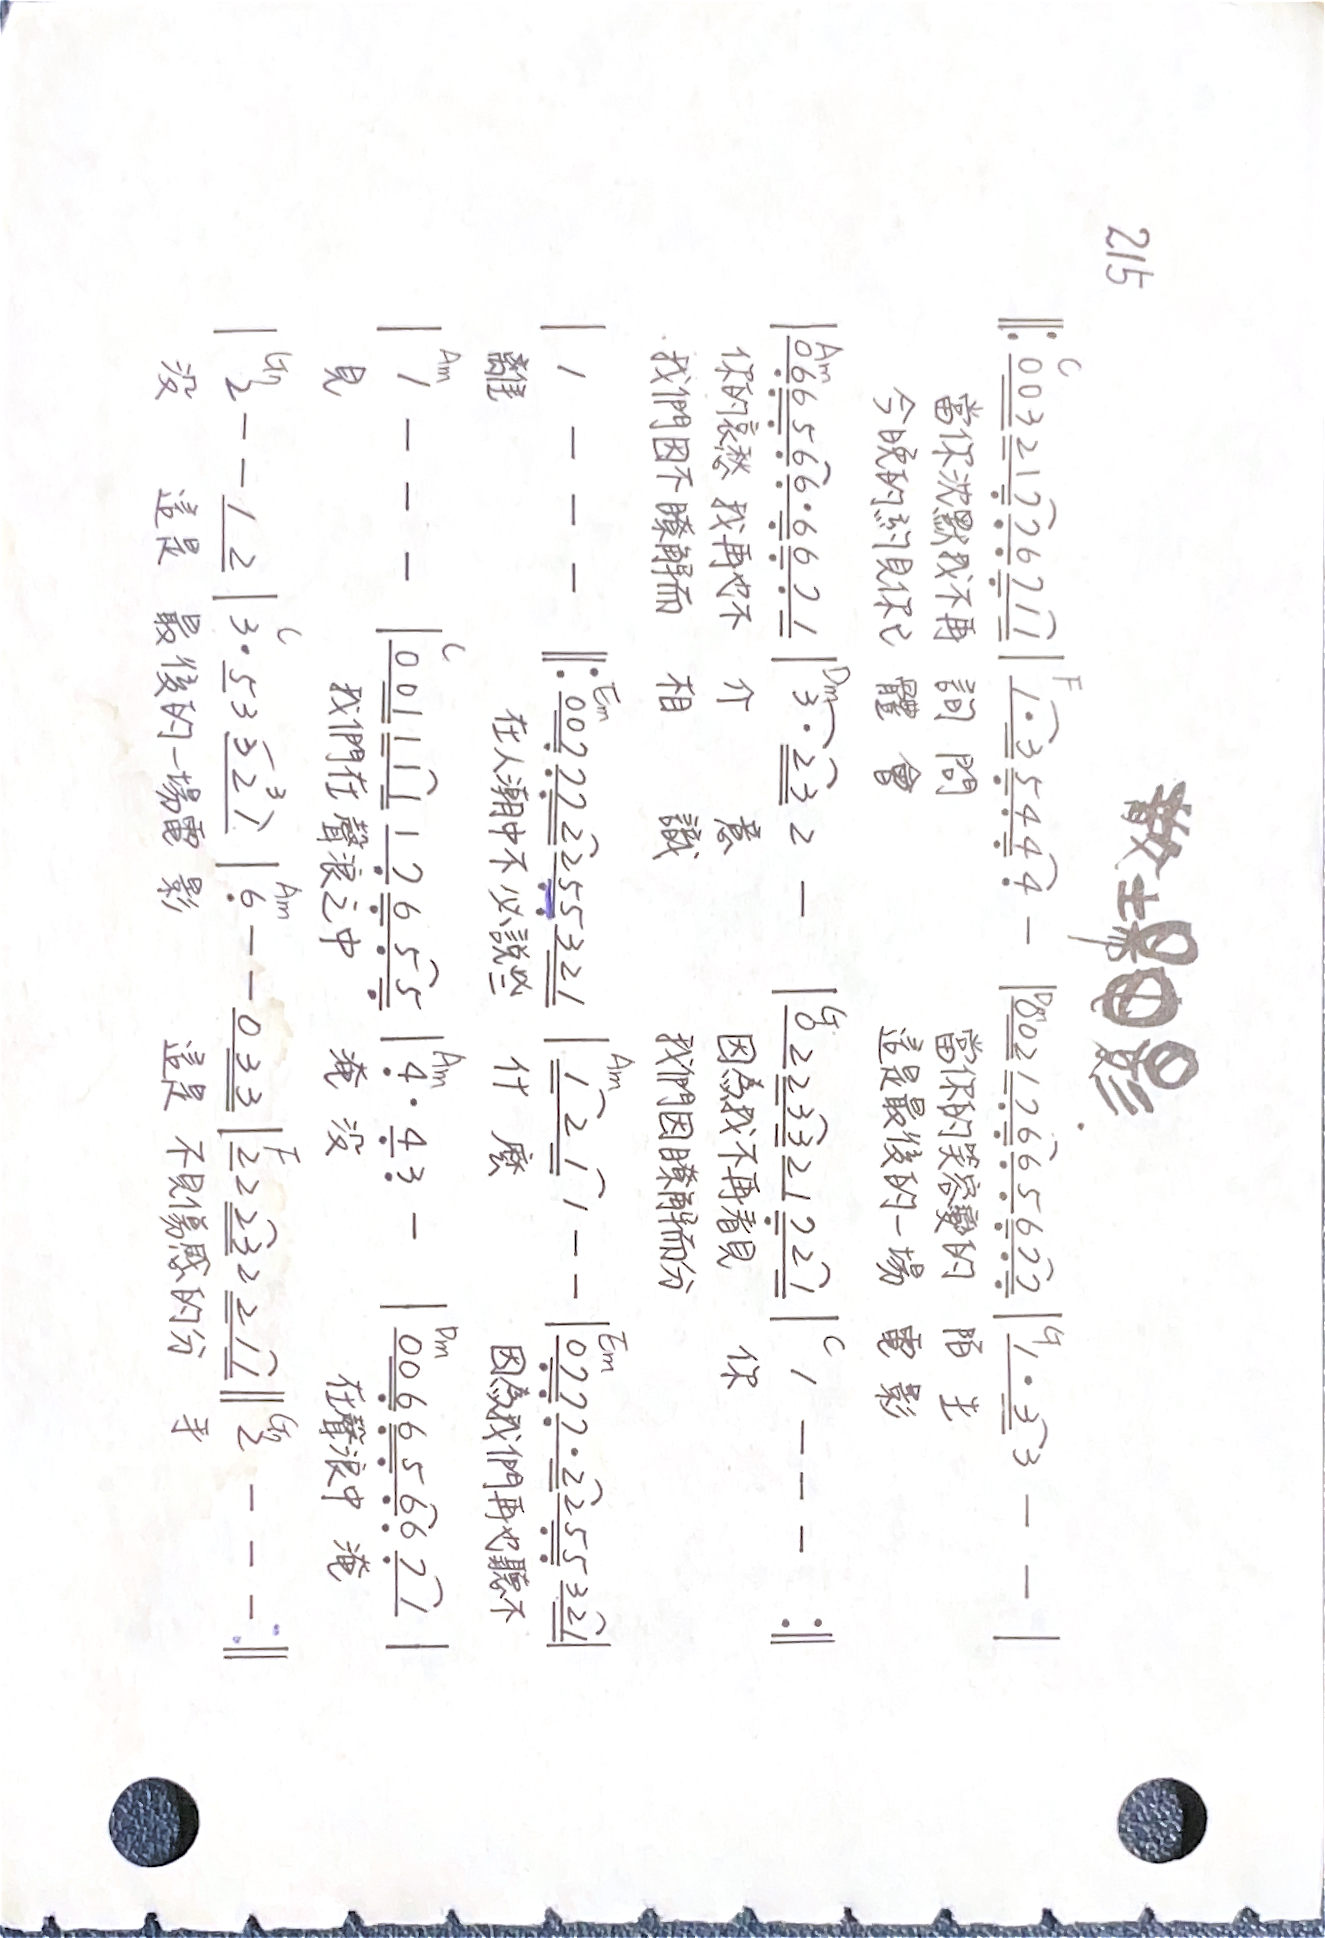 散場電影
215
C F Dm G
‖: 0 0 3 2 1 7 7 6 7 1 1 | 1 · 3 5 4 4 4 — | 0 0 2 1 7 6 6 5 6 7 7 | 1 · 3 3 — — |
當你沈默我不再 詢問 當你的笑容變的 陌生
今晚的約見你已 體會 這是最後的一場 電影
Am Dm G C
| 0 6 6 5 6 6 · 6 6 7 1 | 3 · 2 3 2 — | 0 2 2 3 3 2 1 7 2 1 | 1 — — — :‖
你的哀愁 我再也不 介意 因為我不再看見 你
我們因不瞭解而 相識 我們因瞭解而分
Em Am Em
| 1 — — — ‖: 0 0 7 7 7 2 2 5 5 3 2 1 | 1 2 1 1 — — | 0 7 7 7 · 2 2 5 5 3 2 1 |
離 在人潮中不必說些 什麼 因為我們再也聽不
Am C Am Dm
| 1 — — — | 0 0 1 1 1 1 1 7 6 5 5 | 4 · 4 3 — | 0 0 6 6 5 6 6 7 1 |
見 我們在聲浪之中 淹没 在聲浪中 淹
G7 C 3 Am F G7
| 2 — — 1 2 | 3 · 5 3 3 2 1 | 6 — — 0 3 3 | 2 2 2 3 2 2 1 1 ‖ 2 — — — :‖
没 這是 最後的一場電影 這是 不見傷感的分 手